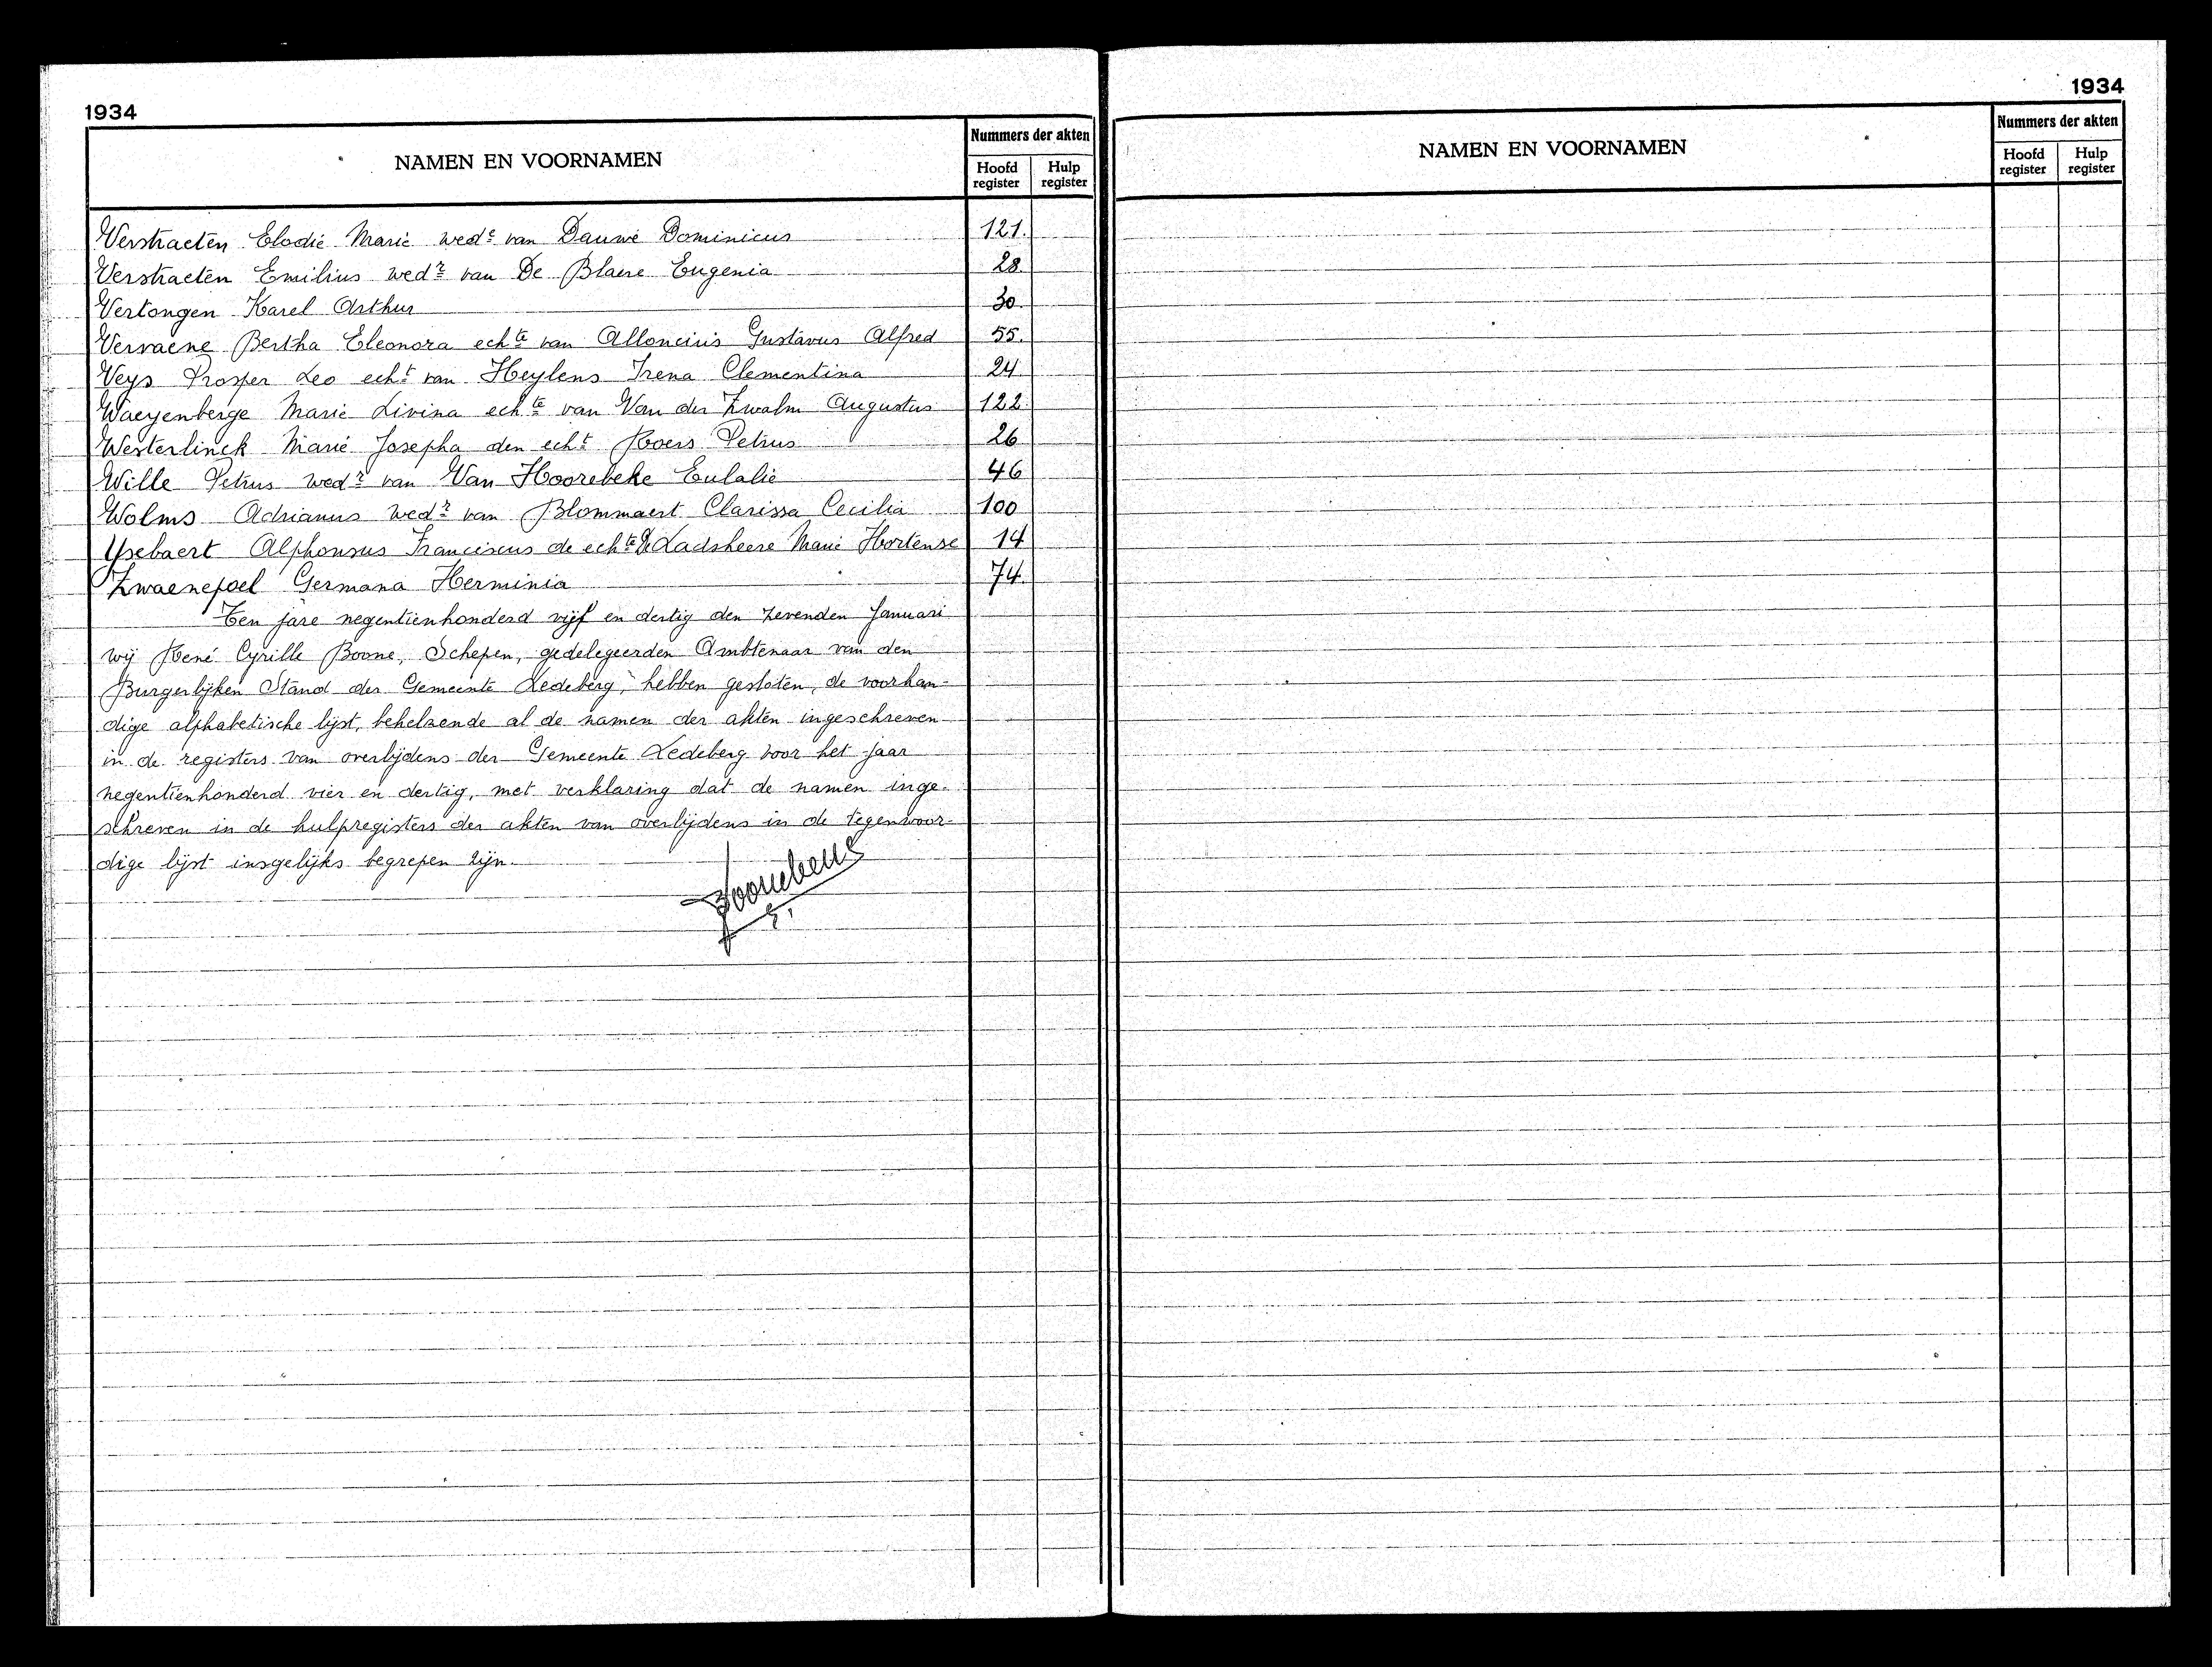 1934
NAMEN EN VOORNAMEN
Nummers der akten
Hoofd register
Hulp register
Verstraeten Elodie Marie wedᵉ van Dauwe Dominicus 121.
Verstraeten Emilius wedʳ van De Blaere Eugenia 28.
Vertongen Karel Arthur 30.
Vervaene Bertha Eleonora echᵗᵉ van Alloncius Gustavus Alfred 55.
Veys Prosper Leo echᵗ van Heylens Irena Clementina 24
Waeyenberge Marie Livina echᵗᵉ van Van der Zwalm Augustus 122.
Westerlinck Marie Josepha den echᵗ Roers Petrus 26
Wille Petrus wedʳ van Van Hoorebeke Eulalie 46
Wolms Adrianus wedʳ van Blommaert Clarissa Cecilia 100
Ysebaert Alphonsus Franciscus de echᵗᵉ De Ladsheere Marie Hortense 14
Zwaenepoel Germana Herminia 74.
Ten jare negentienhonderd vijf en dertig den zevenden Januari
wij René Cyrille Boone, Schepen, gedelegeerden Ambtenaar van den
Burgerlijken Stand der Gemeente Ledeberg, hebben gesloten, de voorhan-
dige alphabetische lijst, behelzende al de namen der akten ingeschreven
in de registers van overlijdens der Gemeente Ledeberg voor het jaar
negentienhonderd vier en dertig, met verklaring dat de namen inge-
schreven in de hulpregisters der akten van overlijdens in de tegenwoor-
dige lijst insgelijks begrepen zijn.
1934
NAMEN EN VOORNAMEN
Nummers der akten
Hoofd register
Hulp register